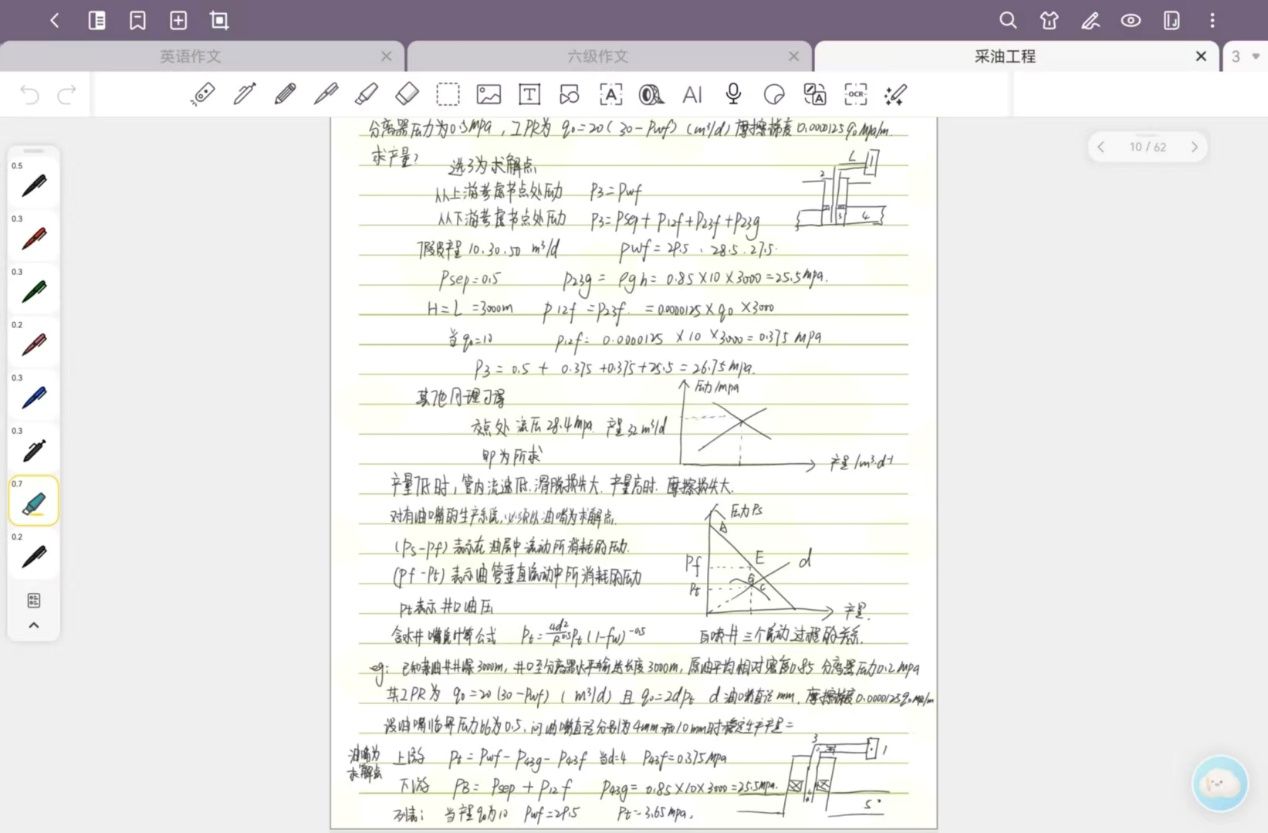 英语作文
六级作文
采油工程
3
10 / 62
T
A
AI
OCR
0.5
0.3
0.3
0.2
0.3
0.3
0.7
0.2
分离器压力为0.5MPa，IPR为 q₀=20(30-Pwf) (m³/d) 摩擦梯度0.0000125q₀MPa/m
求产量?
选3为求解点
从上游考虑节点处压力 P3=Pwf
从下游考虑节点处压力 P3=Psep+P12f+P23f+P23g
假设产量10.30.50 m³/d Pwf=29.5、28.5.27.5.
Psep=0.5 P23g= ρgh= 0.85×10×3000=25.5mpa.
H=L=3000m P12f=P23f. =0.0000125×q₀×3000
当q₀=10 P12f= 0.0000125 ×10×3000=0.375 MPa
P3= 0.5+ 0.375+0.375+25.5=26.75mpa.
其他同理可得
压力/mpa
交点处 流压28.4mpa 产量32m³/d
即为所求
产量/m³·d-1
产量低时，管内流速低.滑脱损失大.产量高时.摩擦损失大.
对有油嘴的生产系统,必须以油嘴为求解点.
压力Ps
(Ps-Pf)表示在油层中流动所消耗的压力.
(Pf-Pt)表示油管垂直流动中所消耗的压力
Pf
E
d
Pt
Pt表示井口油压
产量.
含水井嘴流计算公式 Pt (1-fw)-0.5
反映井三个流动过程的关系.
eg: 已知某油井井深3000m, 井口至分离器水平输送长度3000m, 原油平均相对密度0.85 分离器压力0.2mpa
其IPR为 q₀=20(30-Pwf) (m³/d) 且 q₀=2dPt d油嘴直径mm. 摩擦梯度0.0000125q₀MPa/m
设油嘴临界压力比为0.5.问油嘴直径分别为4mm和10mm时稳定生产产量=
油嘴为
求解点
上游 Pt= Pwf-P43g-P43f 当d=4 P43f=0.375MPa
下游 PB= Psep+P12f P43g= 0.85×10×3000=25.5mpa.
当产量q₀为10 Pwf=29.5 Pt=3.65mpa.